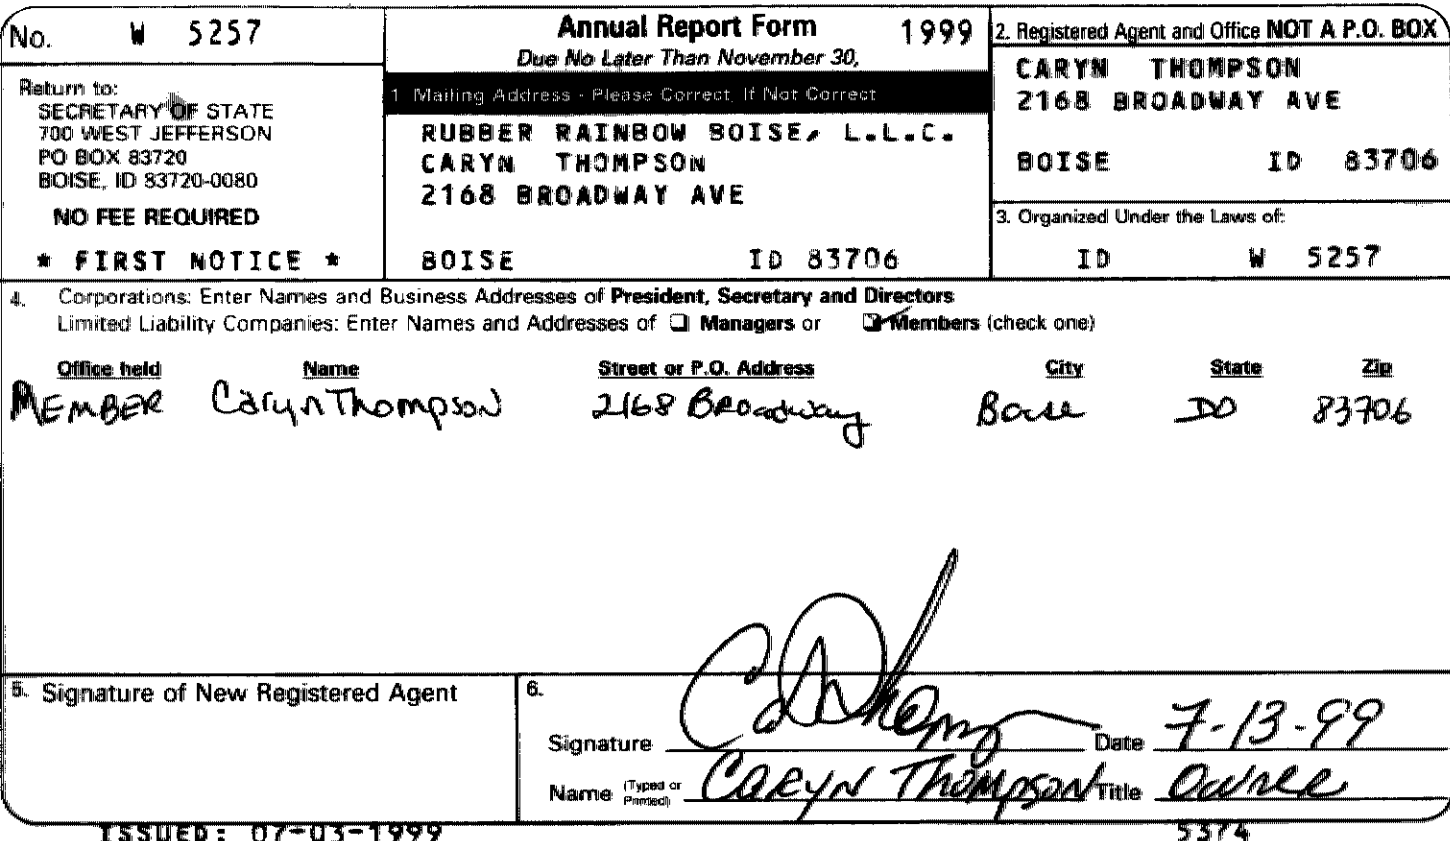 No. W 5257
Return to:
SECRETARY OF STATE
700 WEST JEFFERSON
PO BOX 83720
BOISE, ID 83720-0080
NO FEE REQUIRED
* FIRST NOTICE *
Annual Report Form 1999
Due No Later Than November 30,
1 Mailing Address - Please Correct, If Not Correct
RUBBER RAINBOW BOISE, L.L.C.
CARYN THOMPSON
2168 BROADWAY AVE
BOISE ID 83706
2. Registered Agent and Office NOT A P.O. BOX
CARYN THOMPSON
2168 BROADWAY AVE
BOISE ID 83706
3. Organized Under the Laws of:
ID W 5257
4. Corporations: Enter Names and Business Addresses of President, Secretary and Directors
Limited Liability Companies: Enter Names and Addresses of ☐ Managers or ☑ Members (check one)
Office held Name Street or P.O. Address City State Zip
MEMBER Caryn Thompson 2168 Broadway Boise ID 83706
5. Signature of New Registered Agent
6.
Signature Date 7-13-99
Name (Typed or Printed) CARYN Thompson Title Owner
ISSUED: 07-03-1999 5374